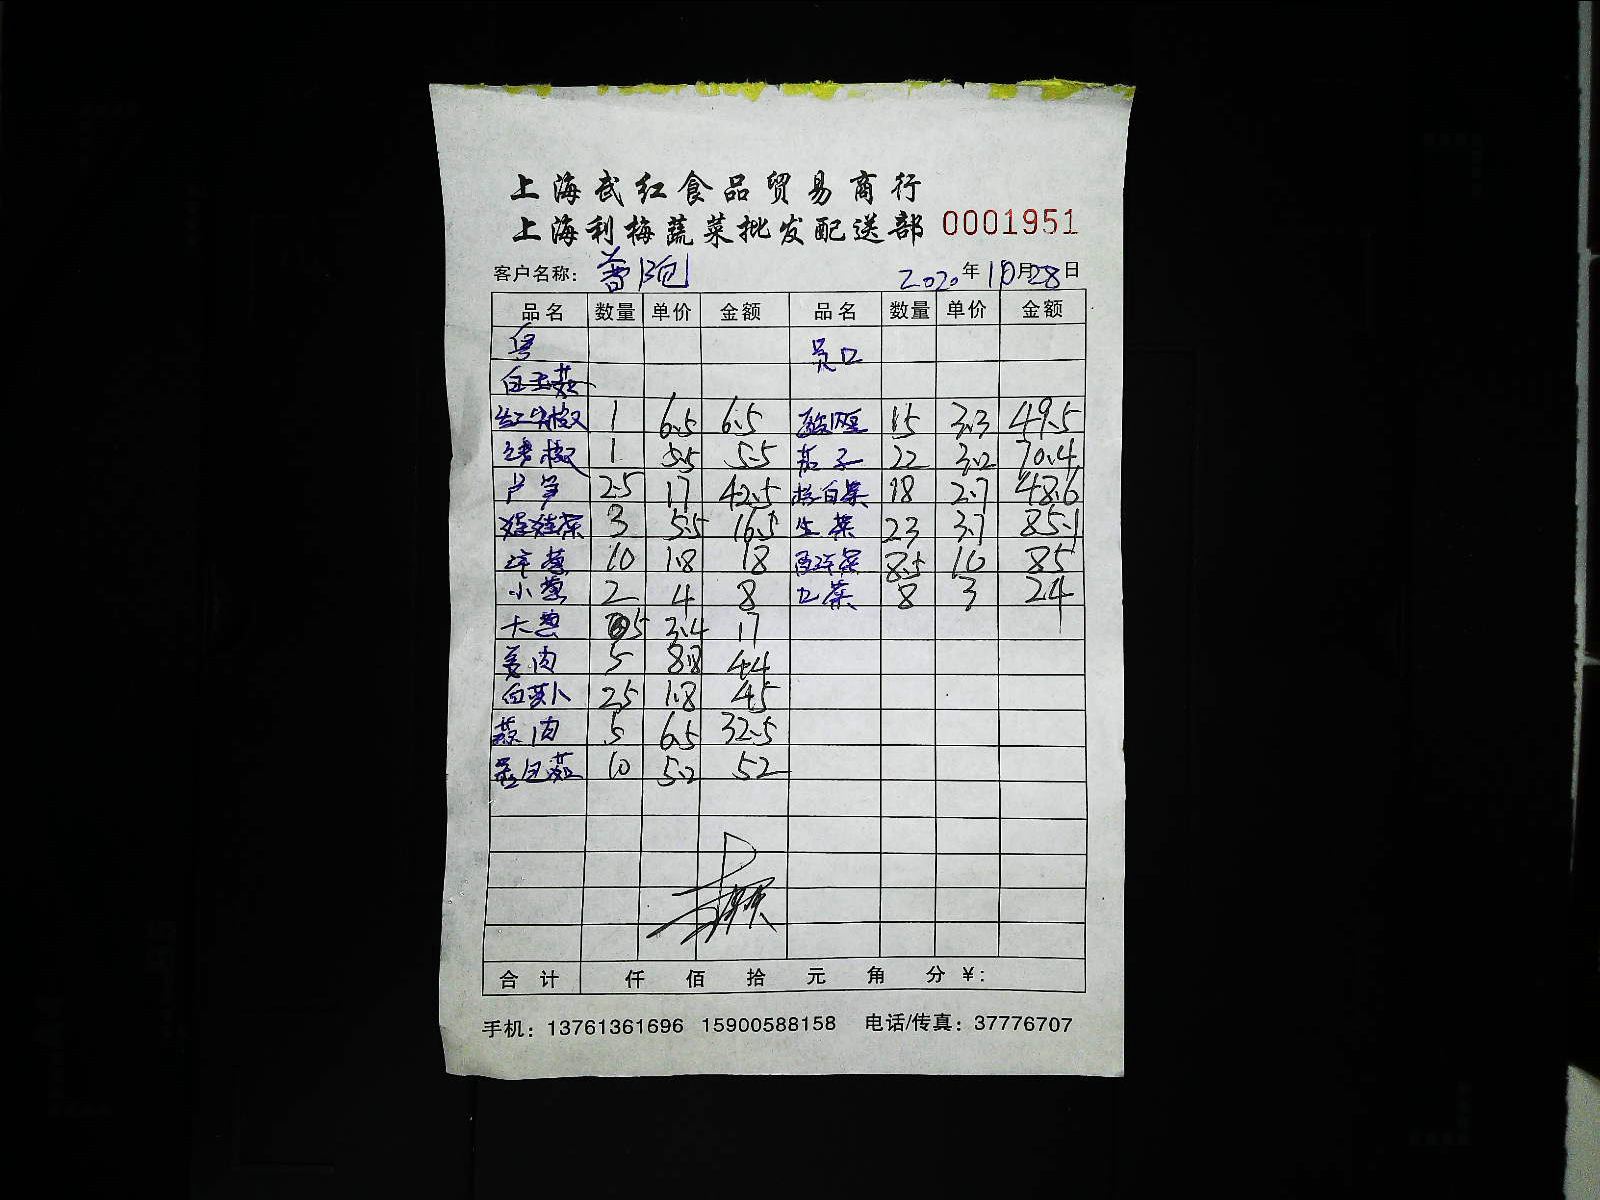 上海武红食品贸易商行
上海利梅蔬菜批发配送部 0001951
客户名称: 2020年10月28日
品名 数量 单价 金额 品名 数量 单价 金额
粤 员口
红尖椒 1 6.5 6.5 15 3.3 49.5
绿椒 1 5.5 5.5 茄子 22 3.2 70.4
芦笋 2.5 17 42.5 18 2.7 48.6
娃娃菜 3 5.5 16.5 生菜 23 3.7 85.1
洋葱 10 1.8 18 8.5 10 85
小葱 2 4 8 九菜 8 3 24
大葱 5 3.4 17
姜肉 5 8.8 44
白萝卜 25 1.8 45
蒜肉 5 6.5 32.5
10 5.2 52
合计 仟 佰 拾 元 角 分 ¥:
手机: 13761361696 15900588158 电话/传真: 37776707